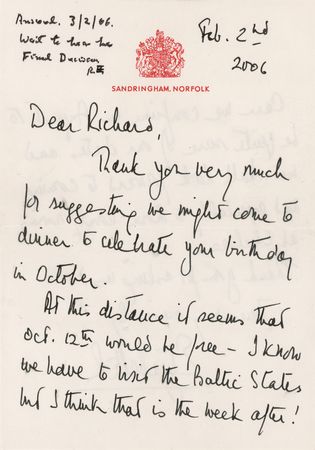 Answd. 3/2/06.
Wait to hear her
Final Decision
Feb. 2nd
2006
SANDRINGHAM, NORFOLK
Dear Richard,
Thank you very much
for suggesting we might come to
dinner to celebrate your birthday
in October.
At this distance it seems that
Oct. 12th would be free – I know
we have to visit the Baltic States
but I think that is the week after!